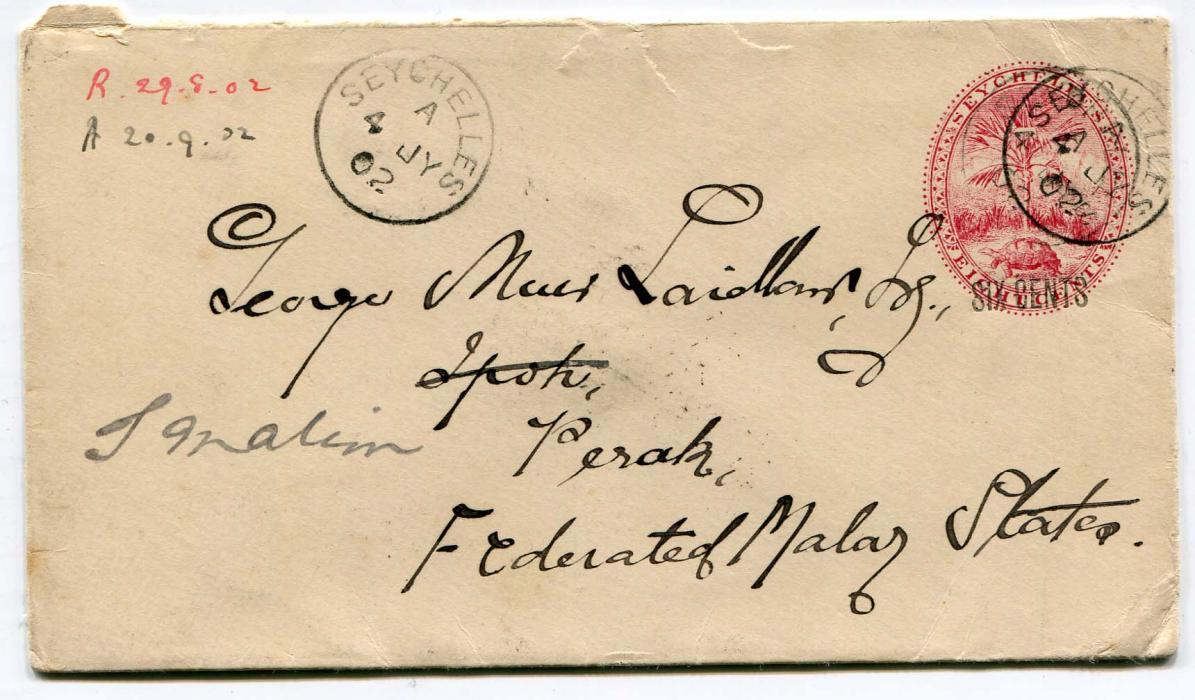 R. 29.8.02
A 20.9.02
SEYCHELLES
A
4 JY
02
SEYCHELLES
EIGHT CENTS
SIX CENTS
SEYCHELLES
A
4 JY
02
George Muir Laidlaw, Esq.,
Ipoh,
Perak,
Federated Malay States.